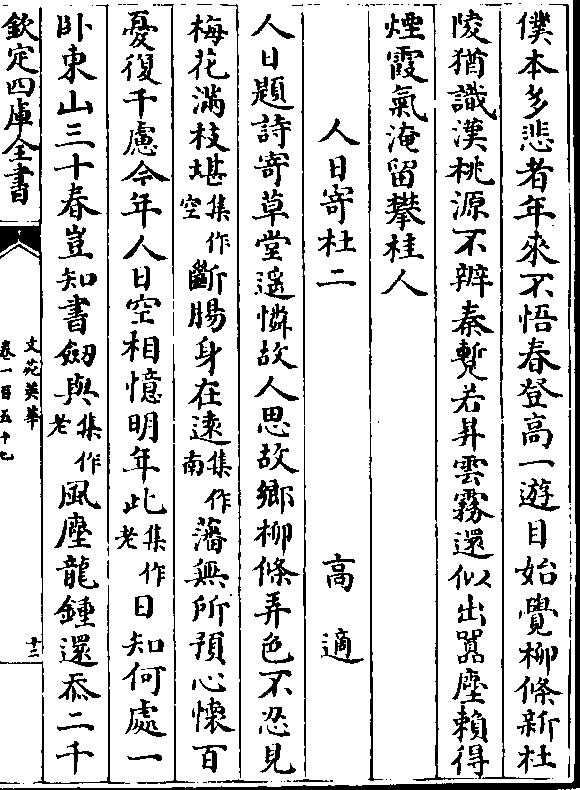 僕本多悲者年來不悟春登高一遊目始覺柳條新杜
陵猶識漢桃源不辨秦蹔若昇雲霧還似出嚣塵賴得
煙霞氣淹留攀桂人
人日寄杜二 高適
人日題詩寄草堂遥憐故人思故鄉柳條弄色不忍見
梅花滿枝堪集作空斷腸身在遠集作南藩無所預心懷百
憂復千慮今年人日空相憶明年此集作老日知何處一
卧東山三十春豈知書劒與集作老風塵龍鍾還忝二千
欽定四庫全書
文苑英華
卷一百五十七
十三